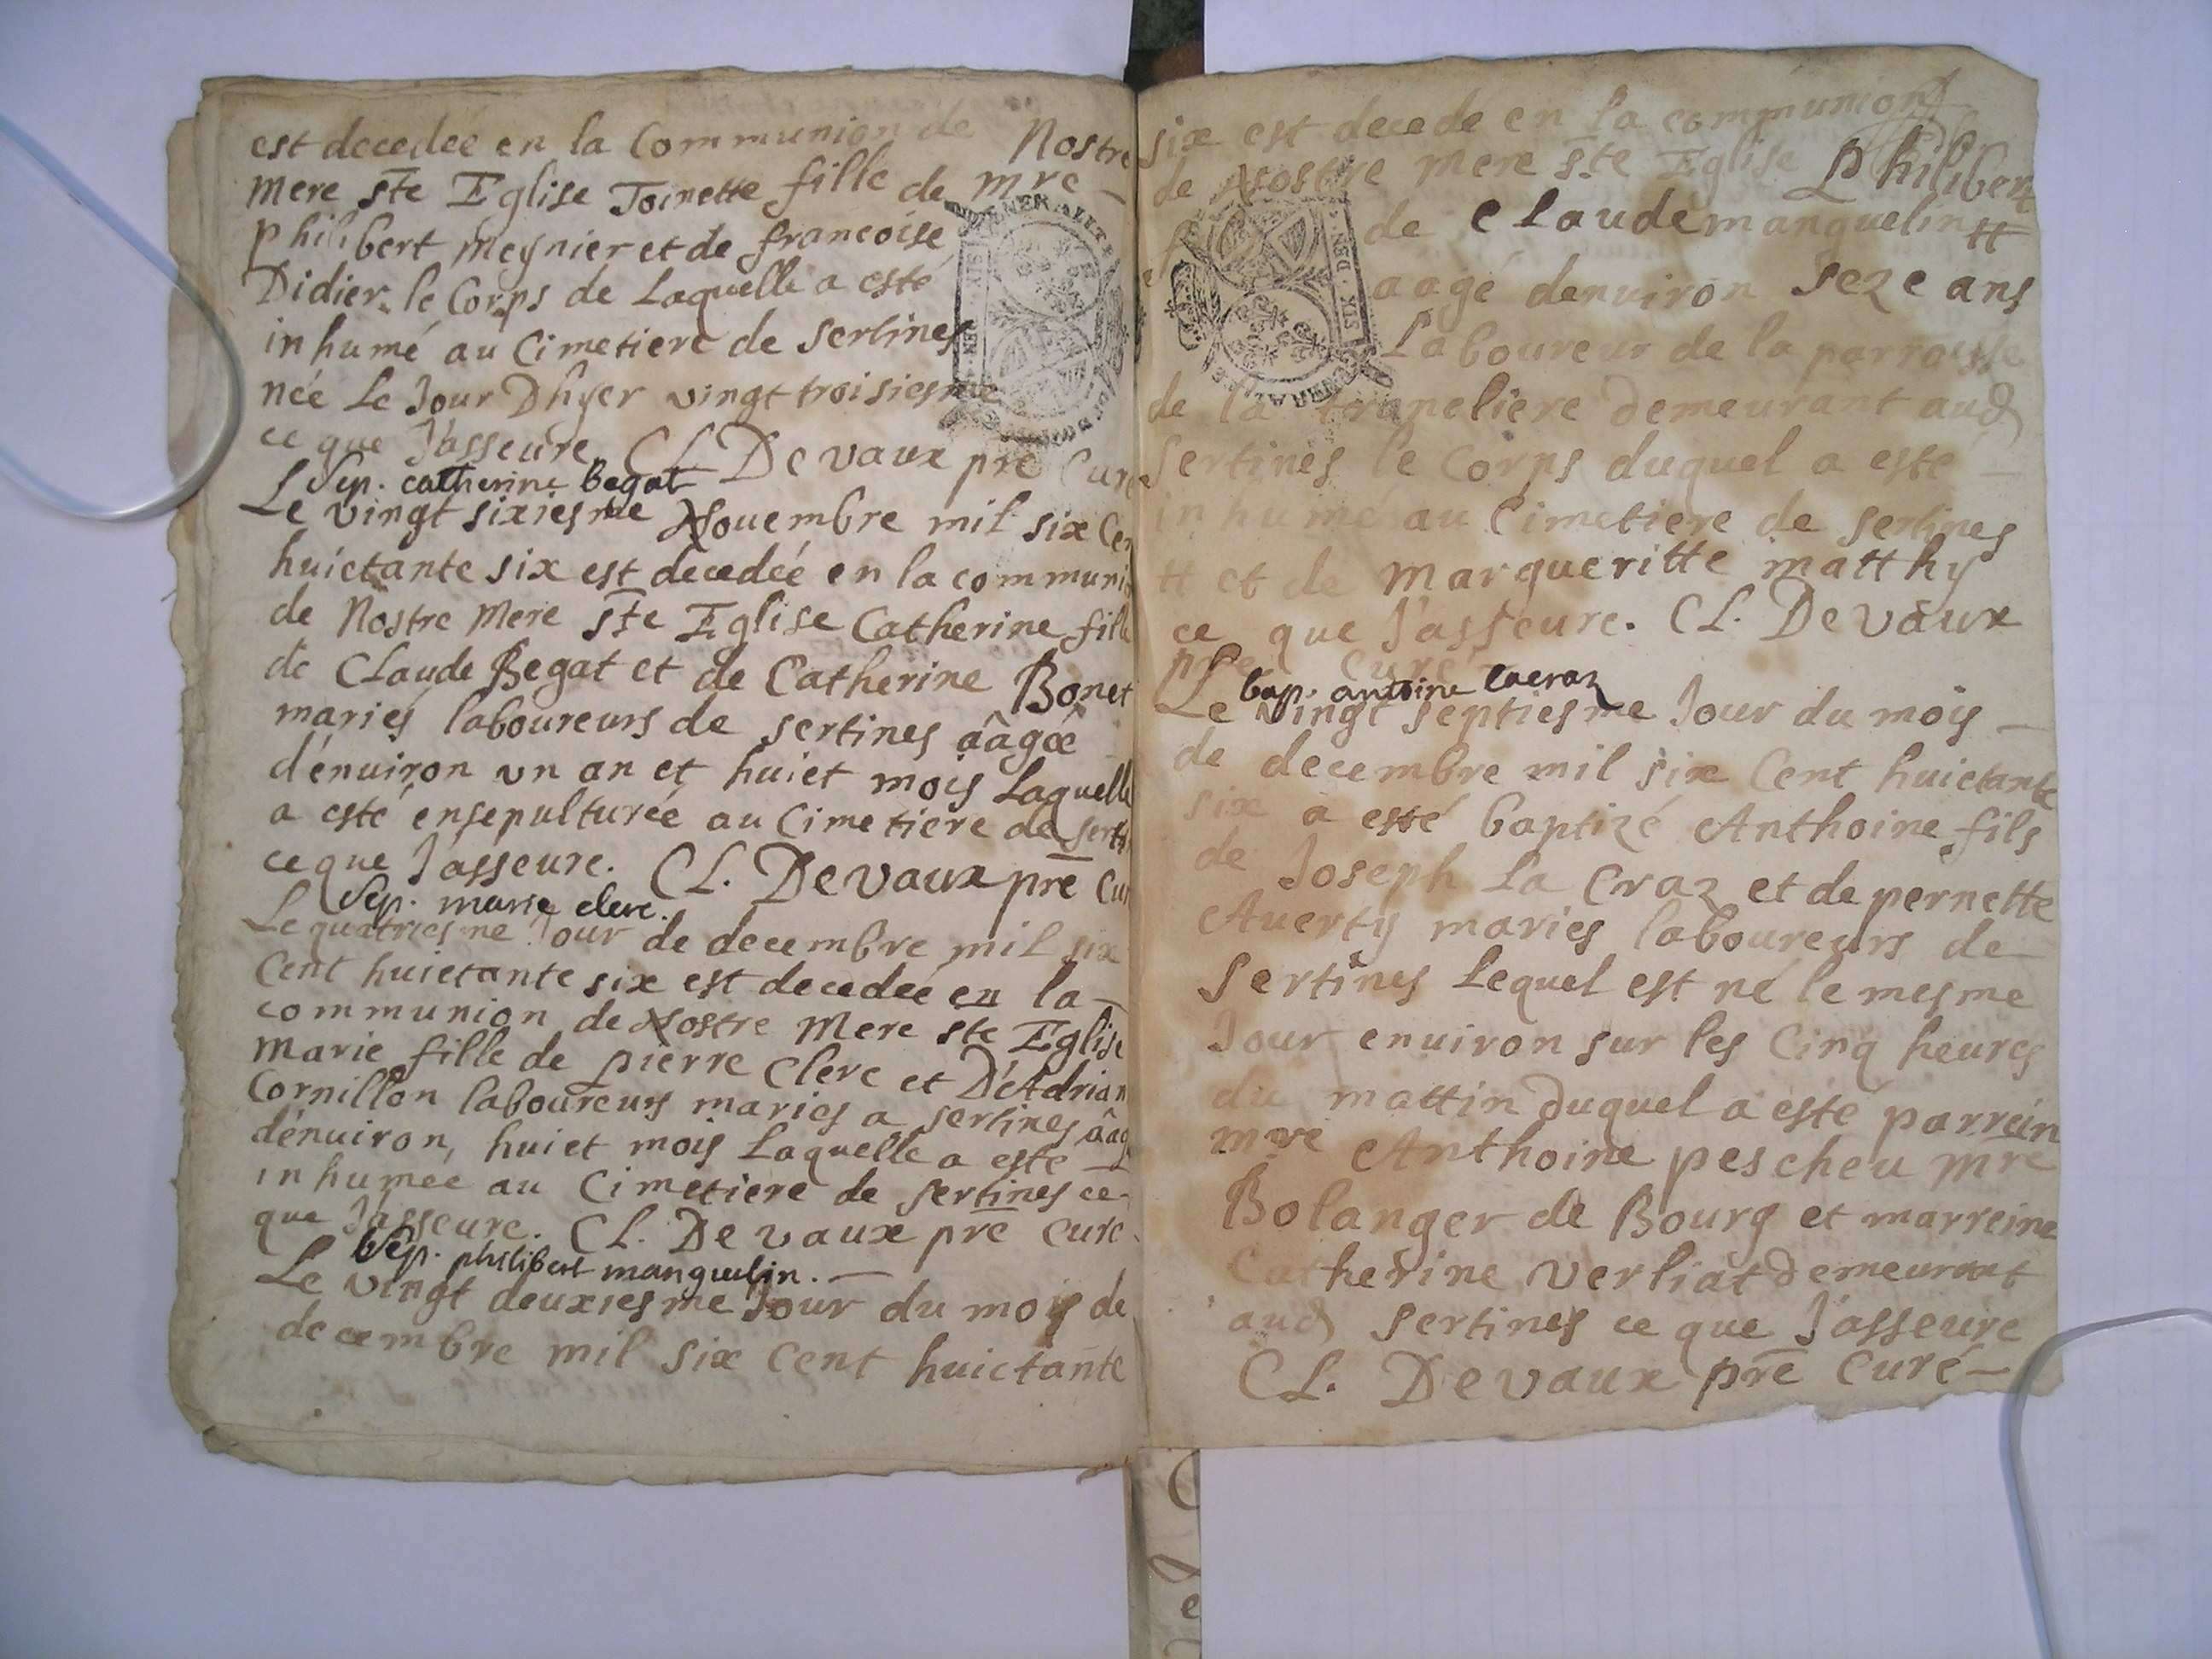 est decedée en la Communion de Nostre
Mere ste Eglise Toinette fille de mre
philibert meynier et de francoise
Didier le Corps de Laquelle a esté
inhumé au Cimetiere de Sertines
née Le Jour Dhyer vingt troisiesme
ce que J'asseure CL. Devaux pre Curé
Sep. catherine begat
Le vingt sixiesme Nouembre mil six Cen
huictante six est decedéé en la communi
de Nostre Mere ste Eglise Catherine fille
de CLaude Begat et de Catherine Bonet
mariés laboureurs de sertines ââgée
d'enuiron vn an et huict mois Laquelle
a esté ensepulturée au Cimetiere de serti
ce que J'asseure. CL. Devaux pre Cur
Sep. marie clerc.
Le quatriesme Jour de decembre mil six
Cent huictante six est decedéé en la
communion de Nostre Mere ste Eglise
Marie fille de pierre Clerc et D'Adrian
Cornillon laboureurs maries a sertines ââg
d'enuiron, huict mois Laquelle a esté
inhumée au Cimetiere de sertines ce
que J'asseure. CL. Devaux pre Curé
Sep. philibert manguelin.
Le vingt deuxiesme Jour du mois de
decembre mil six Cent huictante
six est decede en la communion
de Nostre Mere ste Eglise Philibert
de Claude manguelin #
aagé denuiron seze ans
Laboureur de la parroisse
de la traneliere demeurant aud
sertines le Corps duquel a esté
inhumé au Cimetiere de sertines
# et de Margueritte matthy
ce que J'asseure. CL. Devaux
pre Curé
bap. antoine lacraz
Le vingt septiesme Jour du mois
de decembre mil six Cent huictante
six a esté baptizé Anthoine fils
de Joseph La Craz et de pernette
Auerty maries laboureurs de
Sertines Lequel est né le mesme
Jour enuiron sur les Cinq heures
du mattin duquel a esté parrein
mre Anthoine pescheu mre
Bolanger de Bourg et marreine
Catherine Verliat demeurant
aud sertines ce que J'asseure
CL. Devaux pre Curé